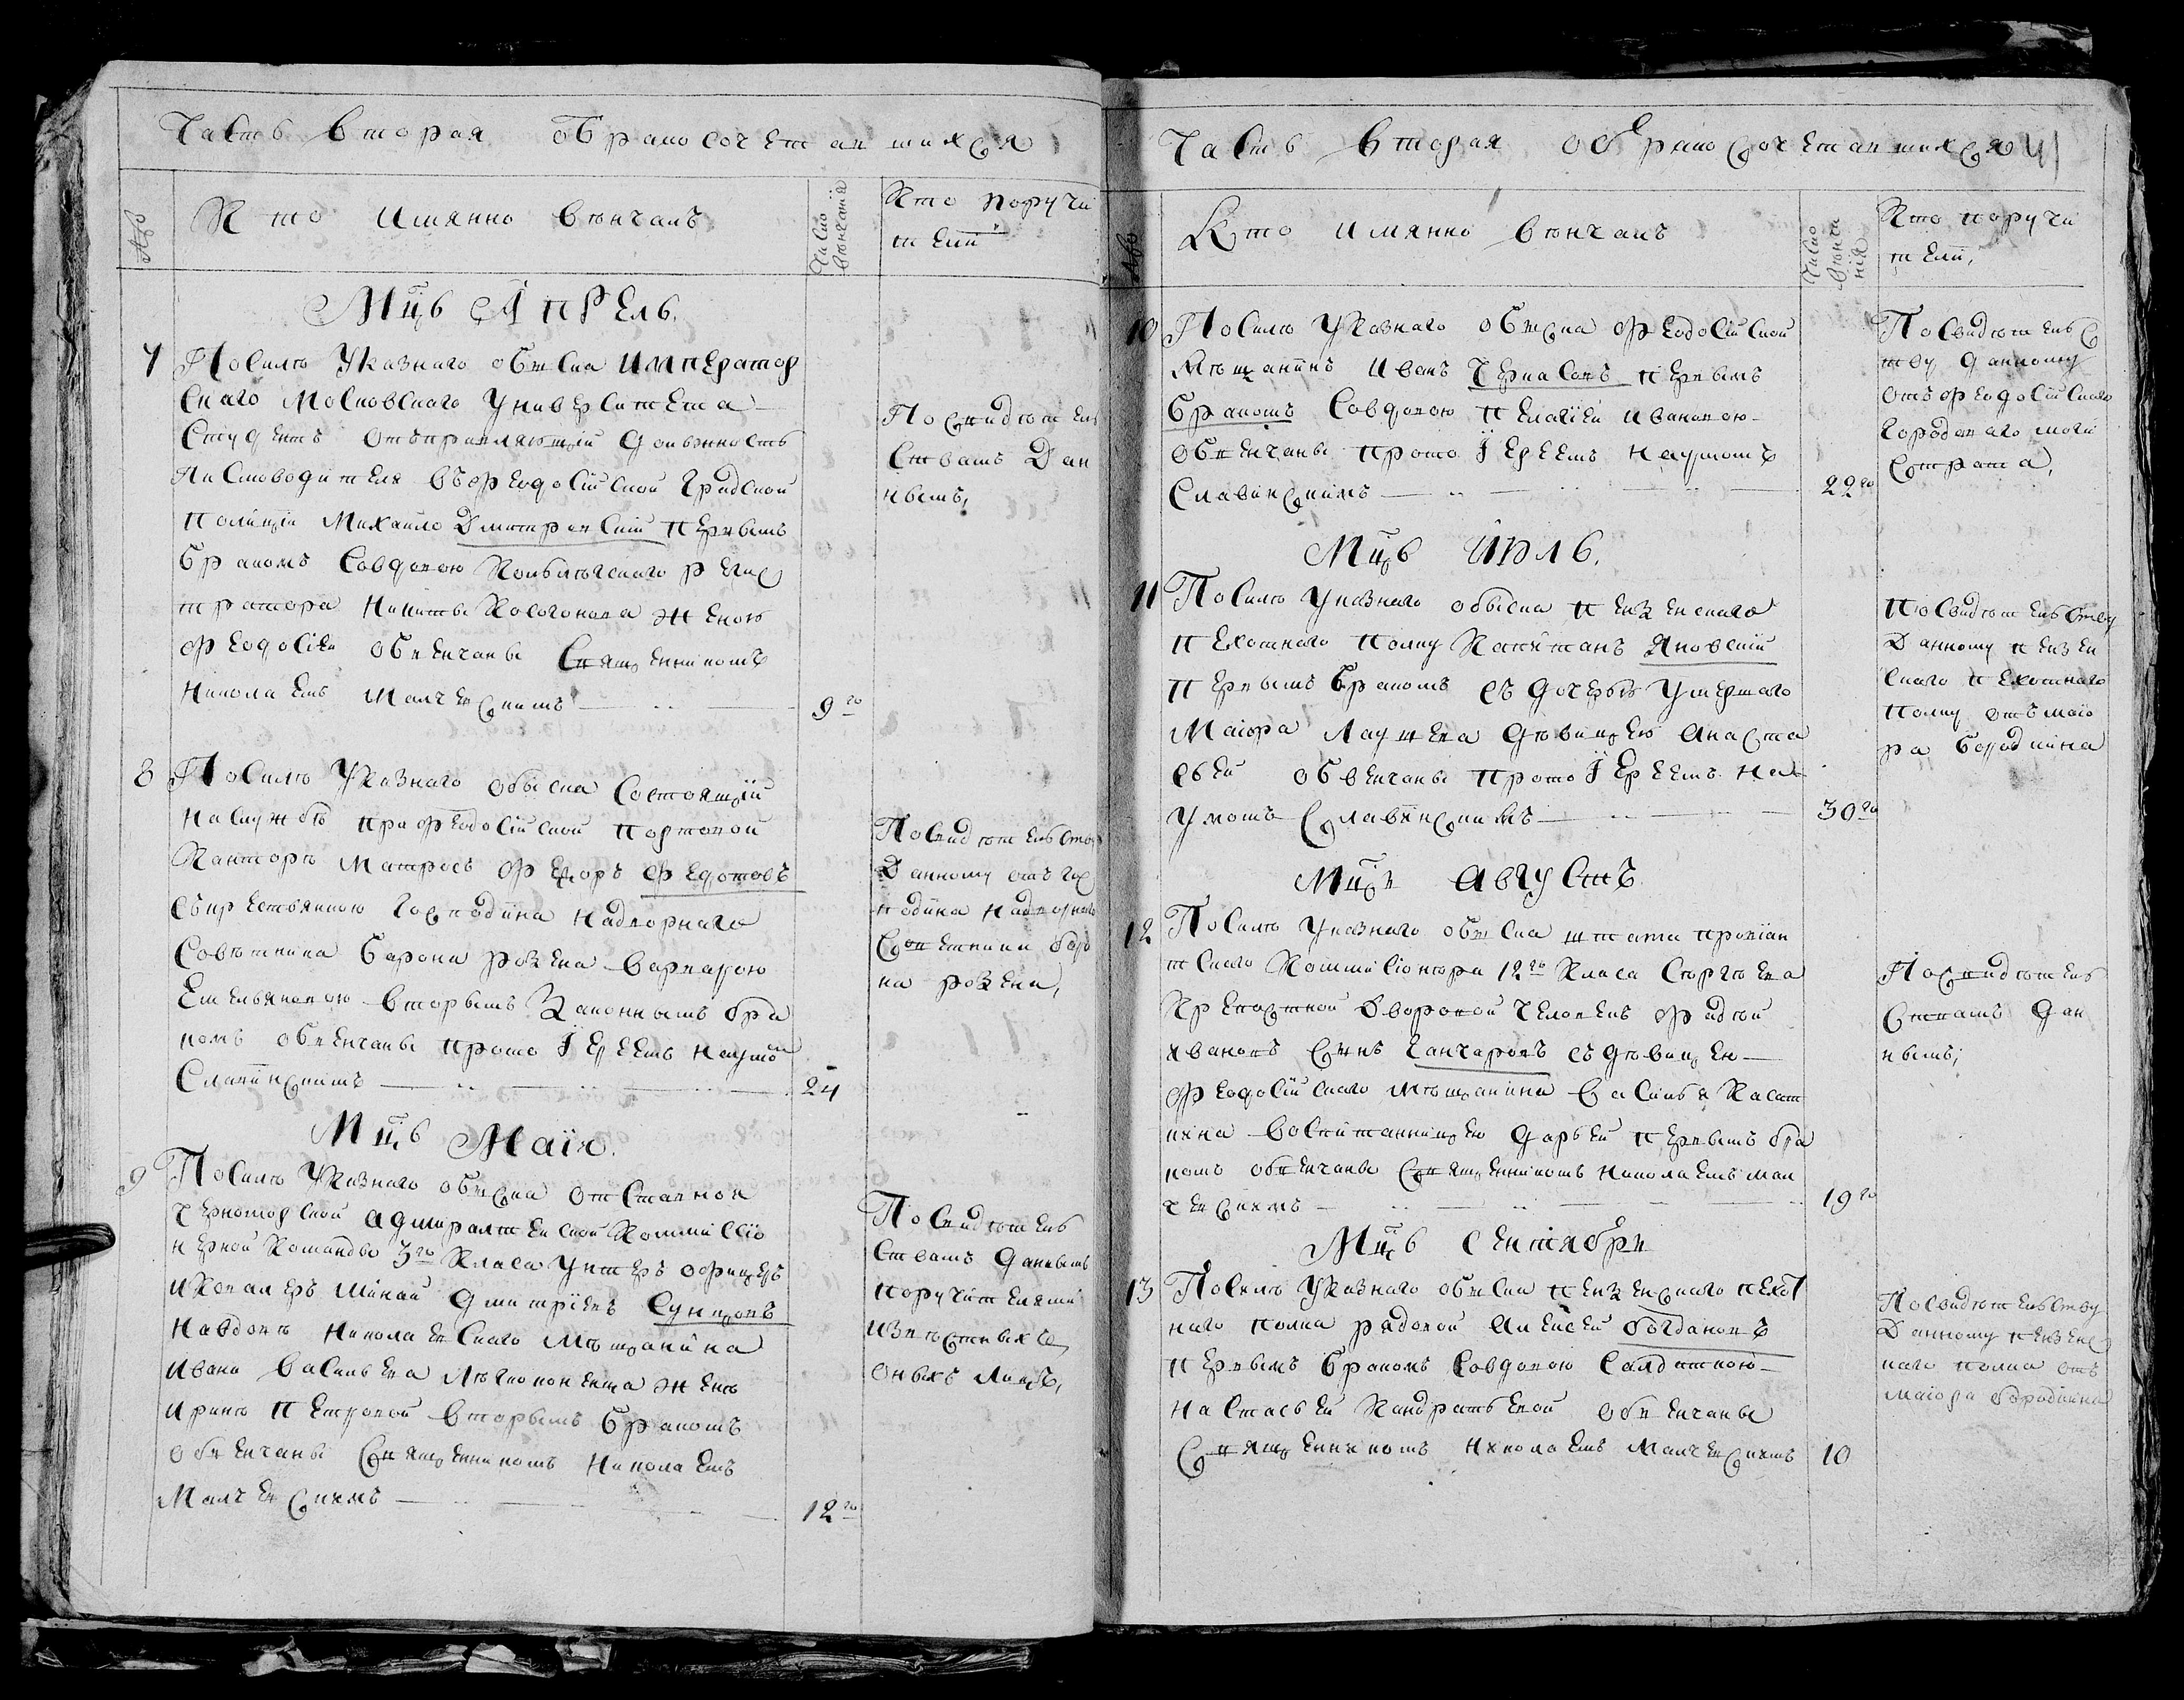 Часть вторая обракосочетавшихся
№
Кто имянно венчанъ
Число венчанія
Кто поручи
тели
Мцъ Апрель.
7
Посилѣ Указнаго обыска Император
скаго Московскаго Университета
Студентъ отъправляющій должность
Писмоводителя въ феодосійской градской
полиціи Михайло Дмитревскій первымъ
бракомъ совдовою Колѣжскаго регис
тратора Никиты Косогонова женою
феодосіею обвенчаны Священникомъ
Николаемъ Малчевскимъ
9го
Посвидѣтель
ствамъ Дан
нымъ,
8
Посилѣ Указнаго обыска Состоящій
наслужбѣ прифеодосійской портовой
Канторѣ матросъ феторъ федотовъ
съкрестьянкою господина надворнаго
Советника барона розена варварою
Емельяновою вторымъ Законнымъ бра
комъ обвенчаны протоІереемъ наумомъ
Славинскимъ
24
Посвидѣтельству
Данному отъ гос
подина надворнаго
Советника баро
на розена,
Мцъ Маія.
9
Посилѣ Указнаго обыска отставной
Черноморской адмиралтейской Коммисіо
нерной Команды 3го Класа Унтеръ офицеръ
и Кавалеръ минай дмитріевъ Сунцовъ
навдовѣ николаевскаго мѣщанина
Ивана васильева женѣ
иринѣ петровой вторымъ бракомъ
обвенчаны Священникомъ николаемъ
Малчевскимъ
12го
Посвидѣтель
ствамъ данымъ
поручителями
извѣстныхъ
оныхъ лицъ,
Часть вторая обракосочетавшихся 41
№
Кто имянно венчанъ
Число венча
нія
Кто поручи
тели,
10
Посилѣ Указнаго обыска феодосійской
Мѣщанинъ Иванъ Черкасовъ первымъ
бракомъ совдовою пелагіей ивановою
обвенчаны протоІереемъ наумомъ
Славинскимъ
22го
Посвидѣтельс
тву данному
отъ феодосійскаго
городоваго маги
страта,
Мцъ Июль.
11
Посилѣ Указнаго обыска пензенскаго
пехотнаго полку Капитанъ Яновскій
первымъ бракомъ съ дочерью умершаго
Маіора Лаушева дѣвицею Анаста
сьей обвенчаны протоІереемъ на
умомъ Славинскимъ
30го
Посвидѣтельству
Данному пензен
скаго пехотнаго
полку отъ маіо
ра бородина
Мцъ Августъ
12
Посилѣ Указнаго обыска штата провіан
тскаго Коммисіонера 12го Класа Сергѣева
Крепостной Дворовой Человекъ фадѣй
ивановъ сынъ Ганчаровъ съ дѣвицей
феодосійскаго мѣщанина василья Касат
кина воспитанницею дарьей первымъ бра
комъ обвенчаны Священникомъ николаемъ мал
чевскимъ
19го
Посвидѣтель
ствамъ дан
нымъ,
Мцъ Сентября
13
Посилѣ Указнаго обыска пензенскаго пехот
наго полка рядовой Алексей богдановъ
первымъ бракомъ совдовою салдаткою
настасьей Кандратьевой обвенчаны
Священникомъ николаемъ малчевскимъ
10
Посвидѣтельству
Данному пензенс
каго полка отъ
маіора бородина